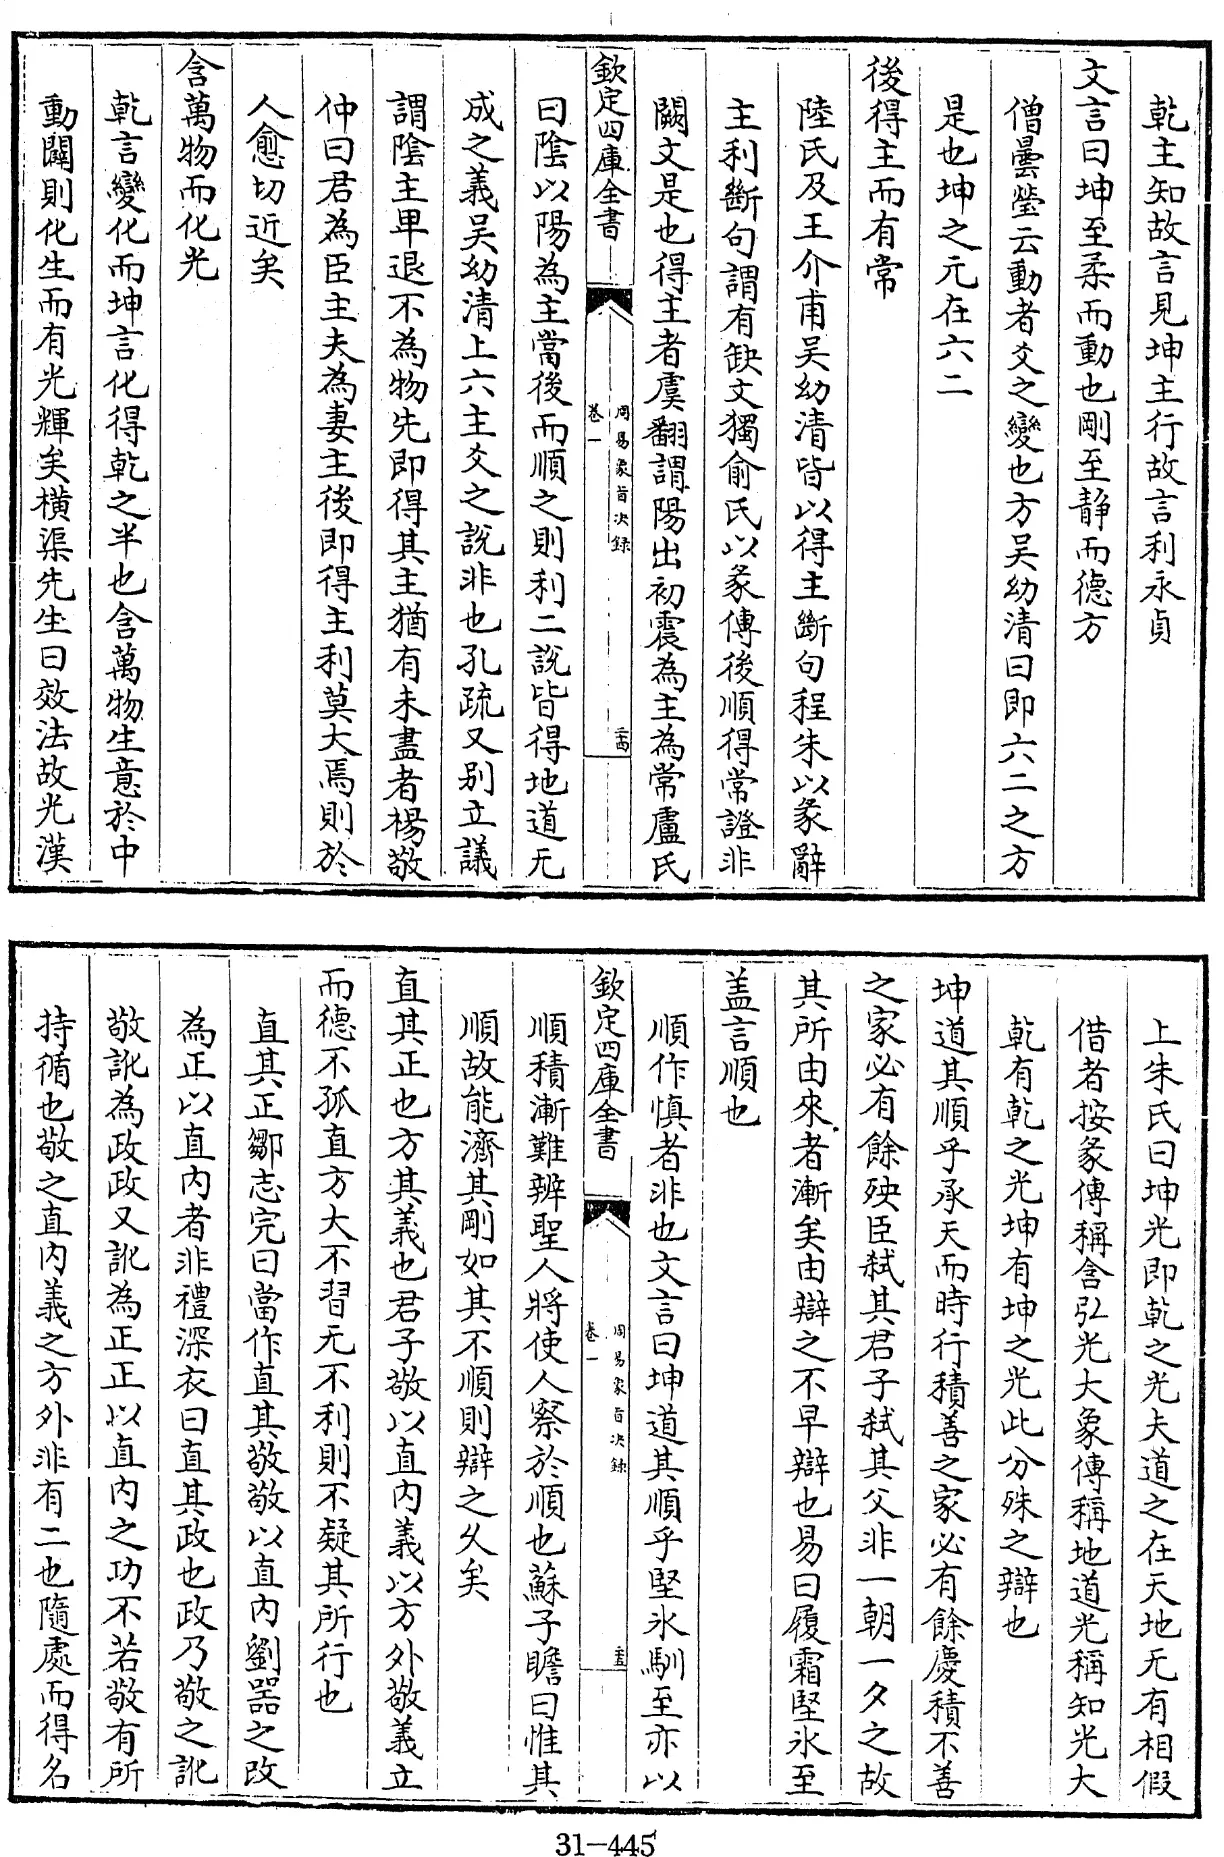 乾主知故言見坤主行故言利永貞
文言曰坤至柔而動也剛至静而德方
僧曇瑩云動者爻之變也方吴幼清曰即六二之方
是也坤之元在六二
後得主而有常
陸氏及王介甫吴幼清皆以得主斷句程朱以彖辭
主利斷句謂有缺文獨俞氏以彖傳後順得常證非
闕文是也得主者虞翻謂陽出初震為主為常盧氏
欽定四庫全書
周易象旨决録
卷一
二十四
曰陰以陽為主當後而順之則利二説皆得地道无
成之義吴幼清上六主爻之説非也孔疏又别立議
謂陰主卑退不為物先即得其主猶有未盡者楊敬
仲曰君為臣主夫為妻主後即得主利莫大焉則於
人愈切近矣
含萬物而化光
乾言變化而坤言化得乾之半也含萬物生意於中
動闢則化生而有光輝矣横渠先生曰效法故光漢
上朱氏曰坤光即乾之光夫道之在天地无有相假
借者按彖傳稱含弘光大象傳稱地道光稱知光大
乾有乾之光坤有坤之光此分殊之辯也
坤道其順乎承天而時行積善之家必有餘慶積不善
之家必有餘殃臣弑其君子弑其父非一朝一夕之故
其所由來者漸矣由辯之不早辯也易曰履霜堅氷至
盖言順也
順作慎者非也文言曰坤道其順乎堅氷馴至亦以
欽定四庫全書
周易象旨决録
卷一
二十五
順積漸難辨聖人將使人察於順也蘇子瞻曰惟其
順故能濟其剛如其不順則辯之久矣
直其正也方其義也君子敬以直内義以方外敬義立
而德不孤直方大不習无不利則不疑其所行也
直其正鄒志完曰當作直其敬敬以直内劉器之改
為正以直内者非禮深衣曰直其政也政乃敬之訛
敬訛為政政又訛為正正以直内之功不若敬有所
持循也敬之直内義之方外非有二也隨處而得名
31-445